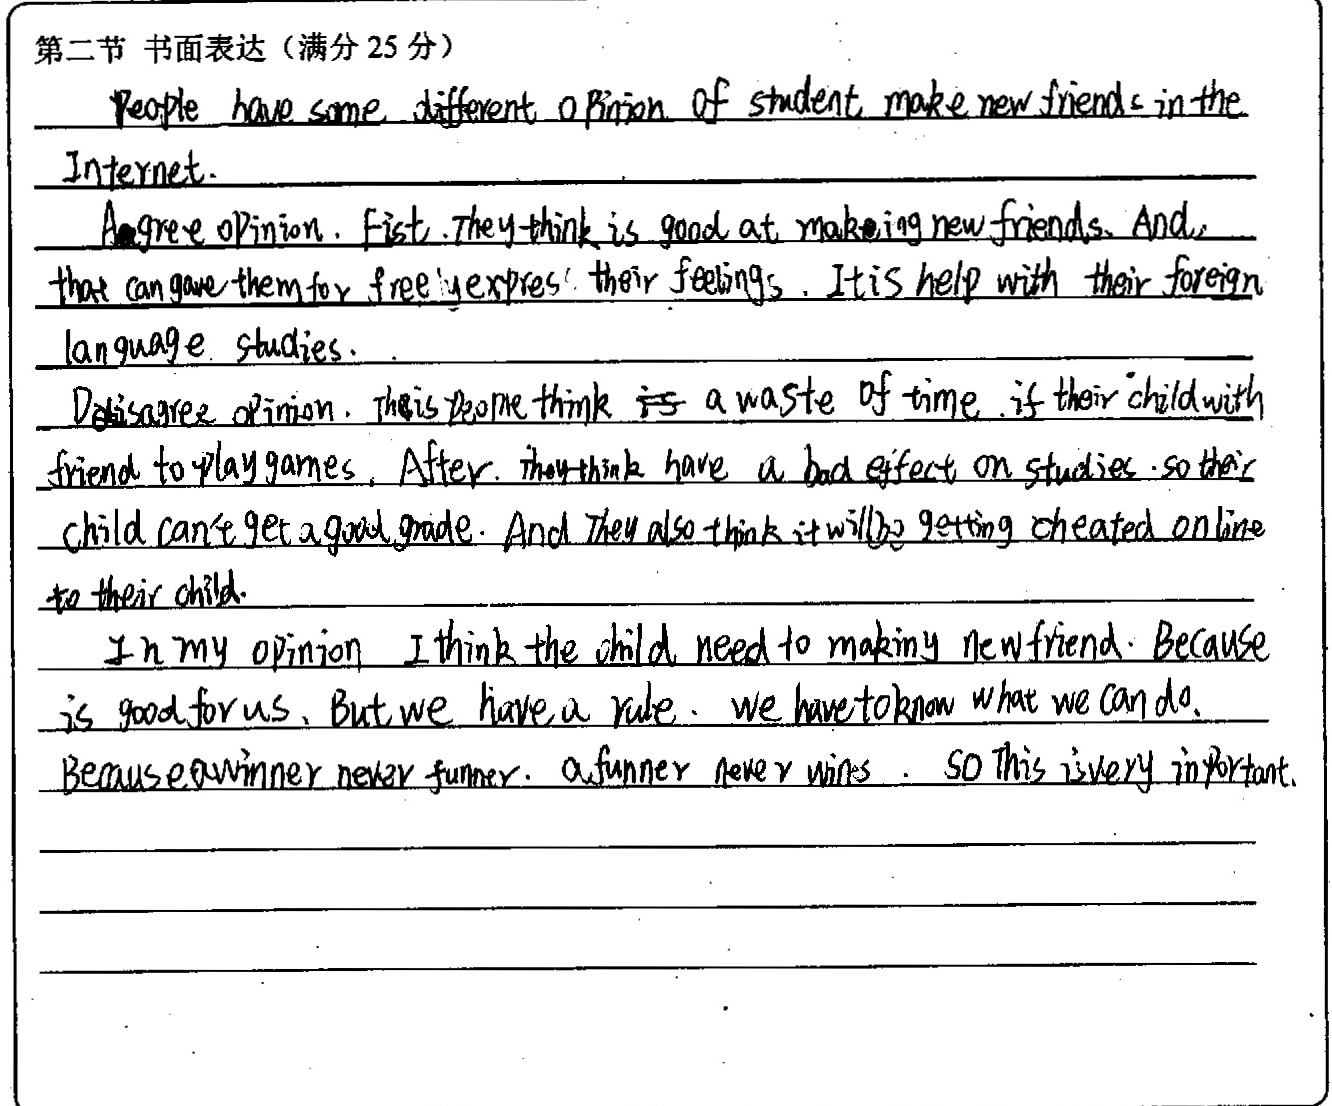 第二节 书面表达（满分 25 分）
People have some different opinion of student make new friends in the
Internet.
Agree opinion. Fist. They think is good at makeing new friends. And,
that can gave them for freely expres their feelings. It is help with their foreign
language studies.
Disagree opinion. This people think is a waste of time if their child with
friend to play games. After. they think have a bad effect on studies. so their
child can't get a good grade. And They also think it will be getting cheated online
to their child.
In my opinion I think the child need to making new friend. Because
is good for us. But we have a rule. we have to know what we can do.
Because a winner never funner. a funner never wins. So This is very inportant.